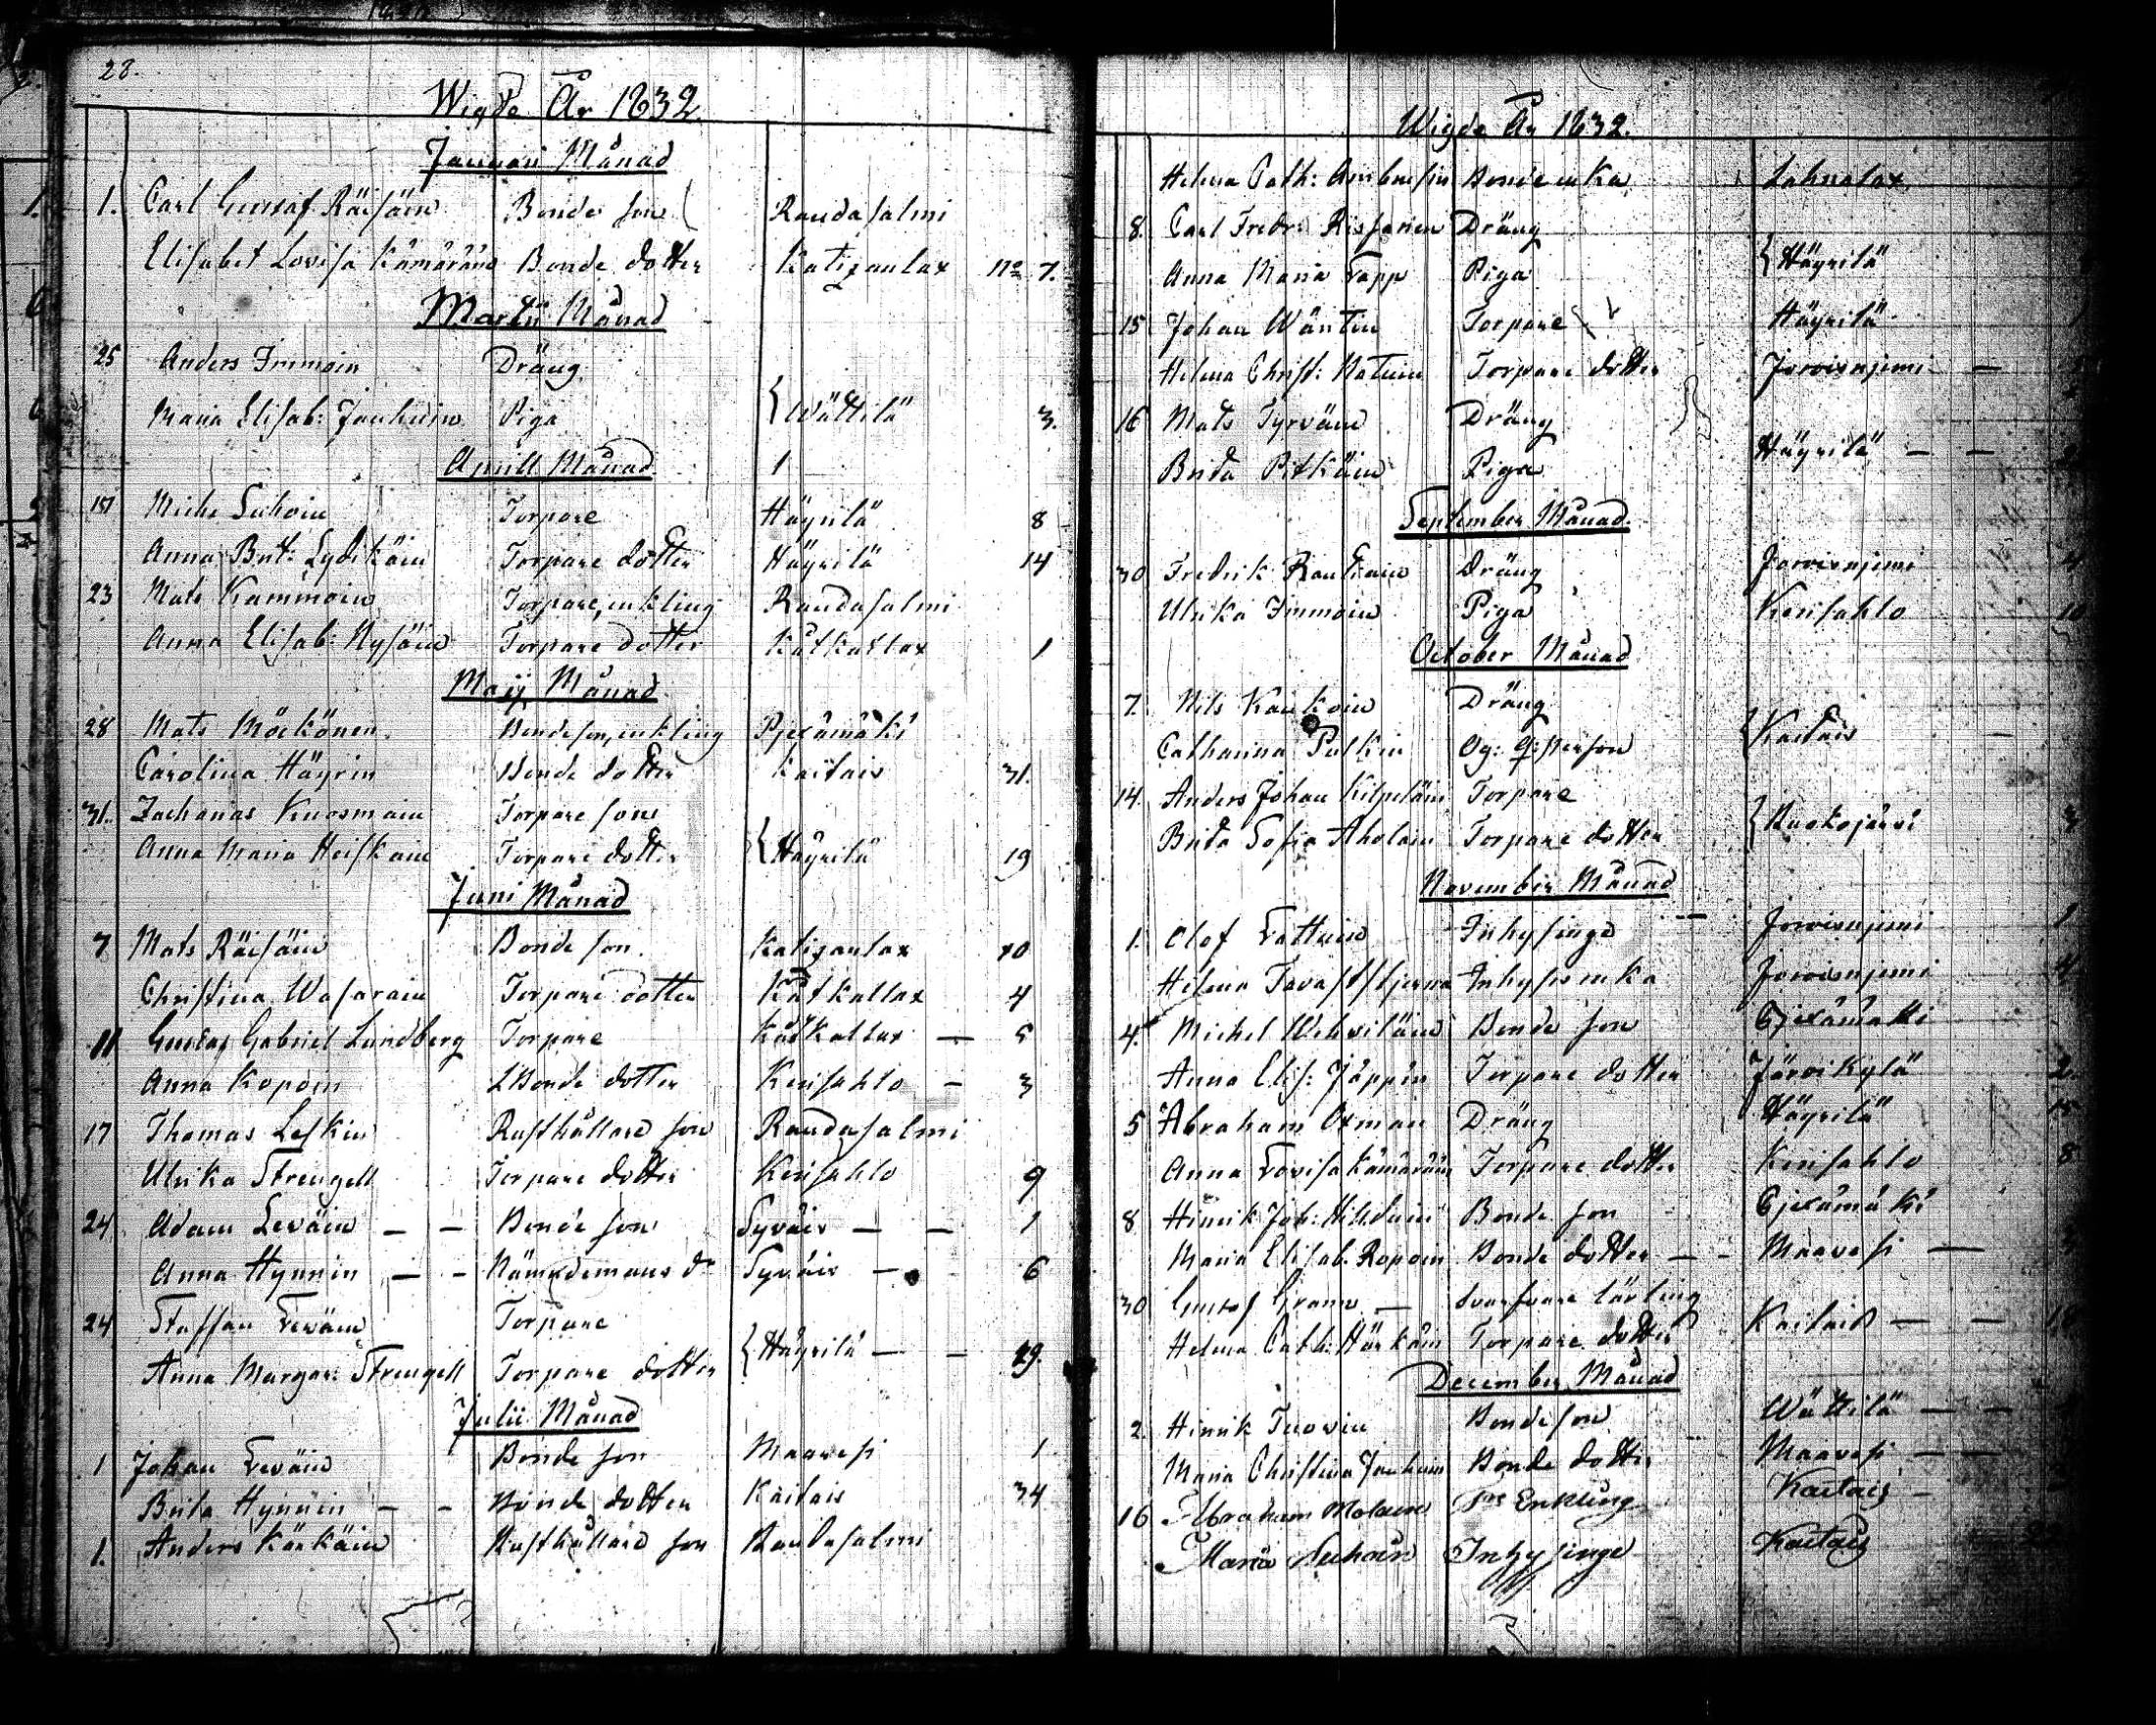 28.
Wigde År 1832
Januari Månad
1. Carl Gustaf Räisäin Bonde son Randasalmi
Elisabet Lovisa Kämäräin Bonde dotter Katisanlax No 7.
Martii Månad
25 Anders Immoin Dräng
Maria Elisab: Jauhiain Piga Wättilä 3.
Aprill Månad
Michel Suhoin Torpare Häyrilä 8
Anna Brit: Lydikäin Torpare dotter Häyrilä 14
23 Mats Kammoin Torpare, inkling Randasalmi
Anna Elisab: Nysöin Torpare dotter Kätkatlax 1
Maij Månad
28 Mats Möckönen Bondeson, inkling Pjexämäki
Carolina Häyrin Bonde dotter Kaitais 31.
31. Zacharias Kuosmain Torpare son
Anna Maria Heiskain Torpare dotter Häyrilä 19
Juni Månad
7 Mats Räisäin Bonde son Katisanlax 10
Christina Wasarain Torpare dotter Kätkatlax 4
11 Gustaf Gabriel Lundberg Torpare Kätkatlax — 5
Anna Kopoin Bonde dotter Kerisahlo — 3
17 Thomas Leskin Rusthållare son Randasalmi
Ulrika Strengell Torpare dotter Kerisahlo 9
24 Adam Leväin — — Bonde son Syväis — — 1
Anna Hynnin — — Nämndemans dr Syväis — 6
24 Staffan Leväin Torpare
Anna Margar: Strengell Torpare dotter Häyrilä — — 29.
Julii Månad
1 Johan Leväin Bonde son Maavesi 1
Brita Hynnin — — Bonde dotter Kaitais 34
1. Anders Kärkäin Rusthållare son Randasalmi
Wigde År 1832.
Helena Cath: Bonde enka Lahnalax
8. Carl Fredr: Rissanen Dräng
Anna Maria Lapp Piga Häyrilä
15 Johan Wäntin Torpare Häyrilä
Helena Christ: Natuin Torpare dotter Joroisnjemi —
16 Mats Tyrväin Dräng
Brita Pitkäin Piga Häyrilä — —
September Månad.
30 Fredrik Rautiain Dräng Joroisnjemi 4
Ulrika Immoin Piga Kerisahlo
October Månad
7. Nils Kaukoin Dräng
Catharina Pulkin Og: qs: person Kaitais
14. Anders Johan Kilpeläin Torpare
Brita Sofia Aholain Torpare dotter Ruokojärvi 3
November Månad
1. Olof Lattuin Inhysinge Joroisnjemi 1
Helena Tavaststjerna Inhyses enka Joroisnjemi 4
4. Michel Wehviläin Bonde son Pjexämäki
Anna Elis: Jäppin Torpare dotter Järvikylä 2
5 Abraham Oxman Dräng Häyrilä 15
Anna Lovisa Kämäräin Torpare dotter Kerisahlo 8
8 Hinrik Joh: Hildain Bonde son Pjexämäki
Maria Elisab. Ropoin Bonde dotter — — Maavesi —
30 Gustaf Gran — Svarfvare lärling
Helena Cath: Härkäin Torpare dotter Kaitais — —
December Månad
2. Hinrik Tuovin Bondeson Wättilä — —
Maria Christina Jauhain Bonde dotter Maavesi — —
16 Abraham Molain Enkling Kaitais —
Maria Suhoin Inhysinge Kaitais